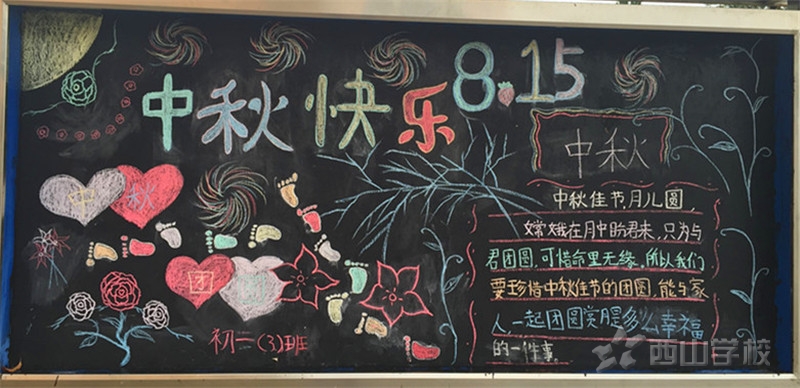 中秋快乐 8.15
中秋
中秋佳节,月儿圆,
嫦娥在月中盼君来,只为与
君团圆,可惜命里无缘,所以我们
要珍惜中秋佳节的团圆,能与家
人一起团圆赏月是多么幸福
的一件事
中秋
团
初二(3)班
西山学校